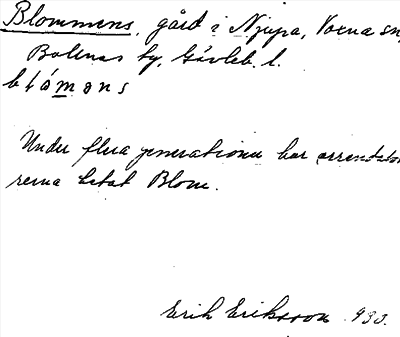 Blommens, gård i Njupa, Voxna sn,
Bollnäs tg, Gävleb. l.
blómǝns
Under flera generationer har arrendato
rerna hetat Blom.
Erik Eriksson 933.